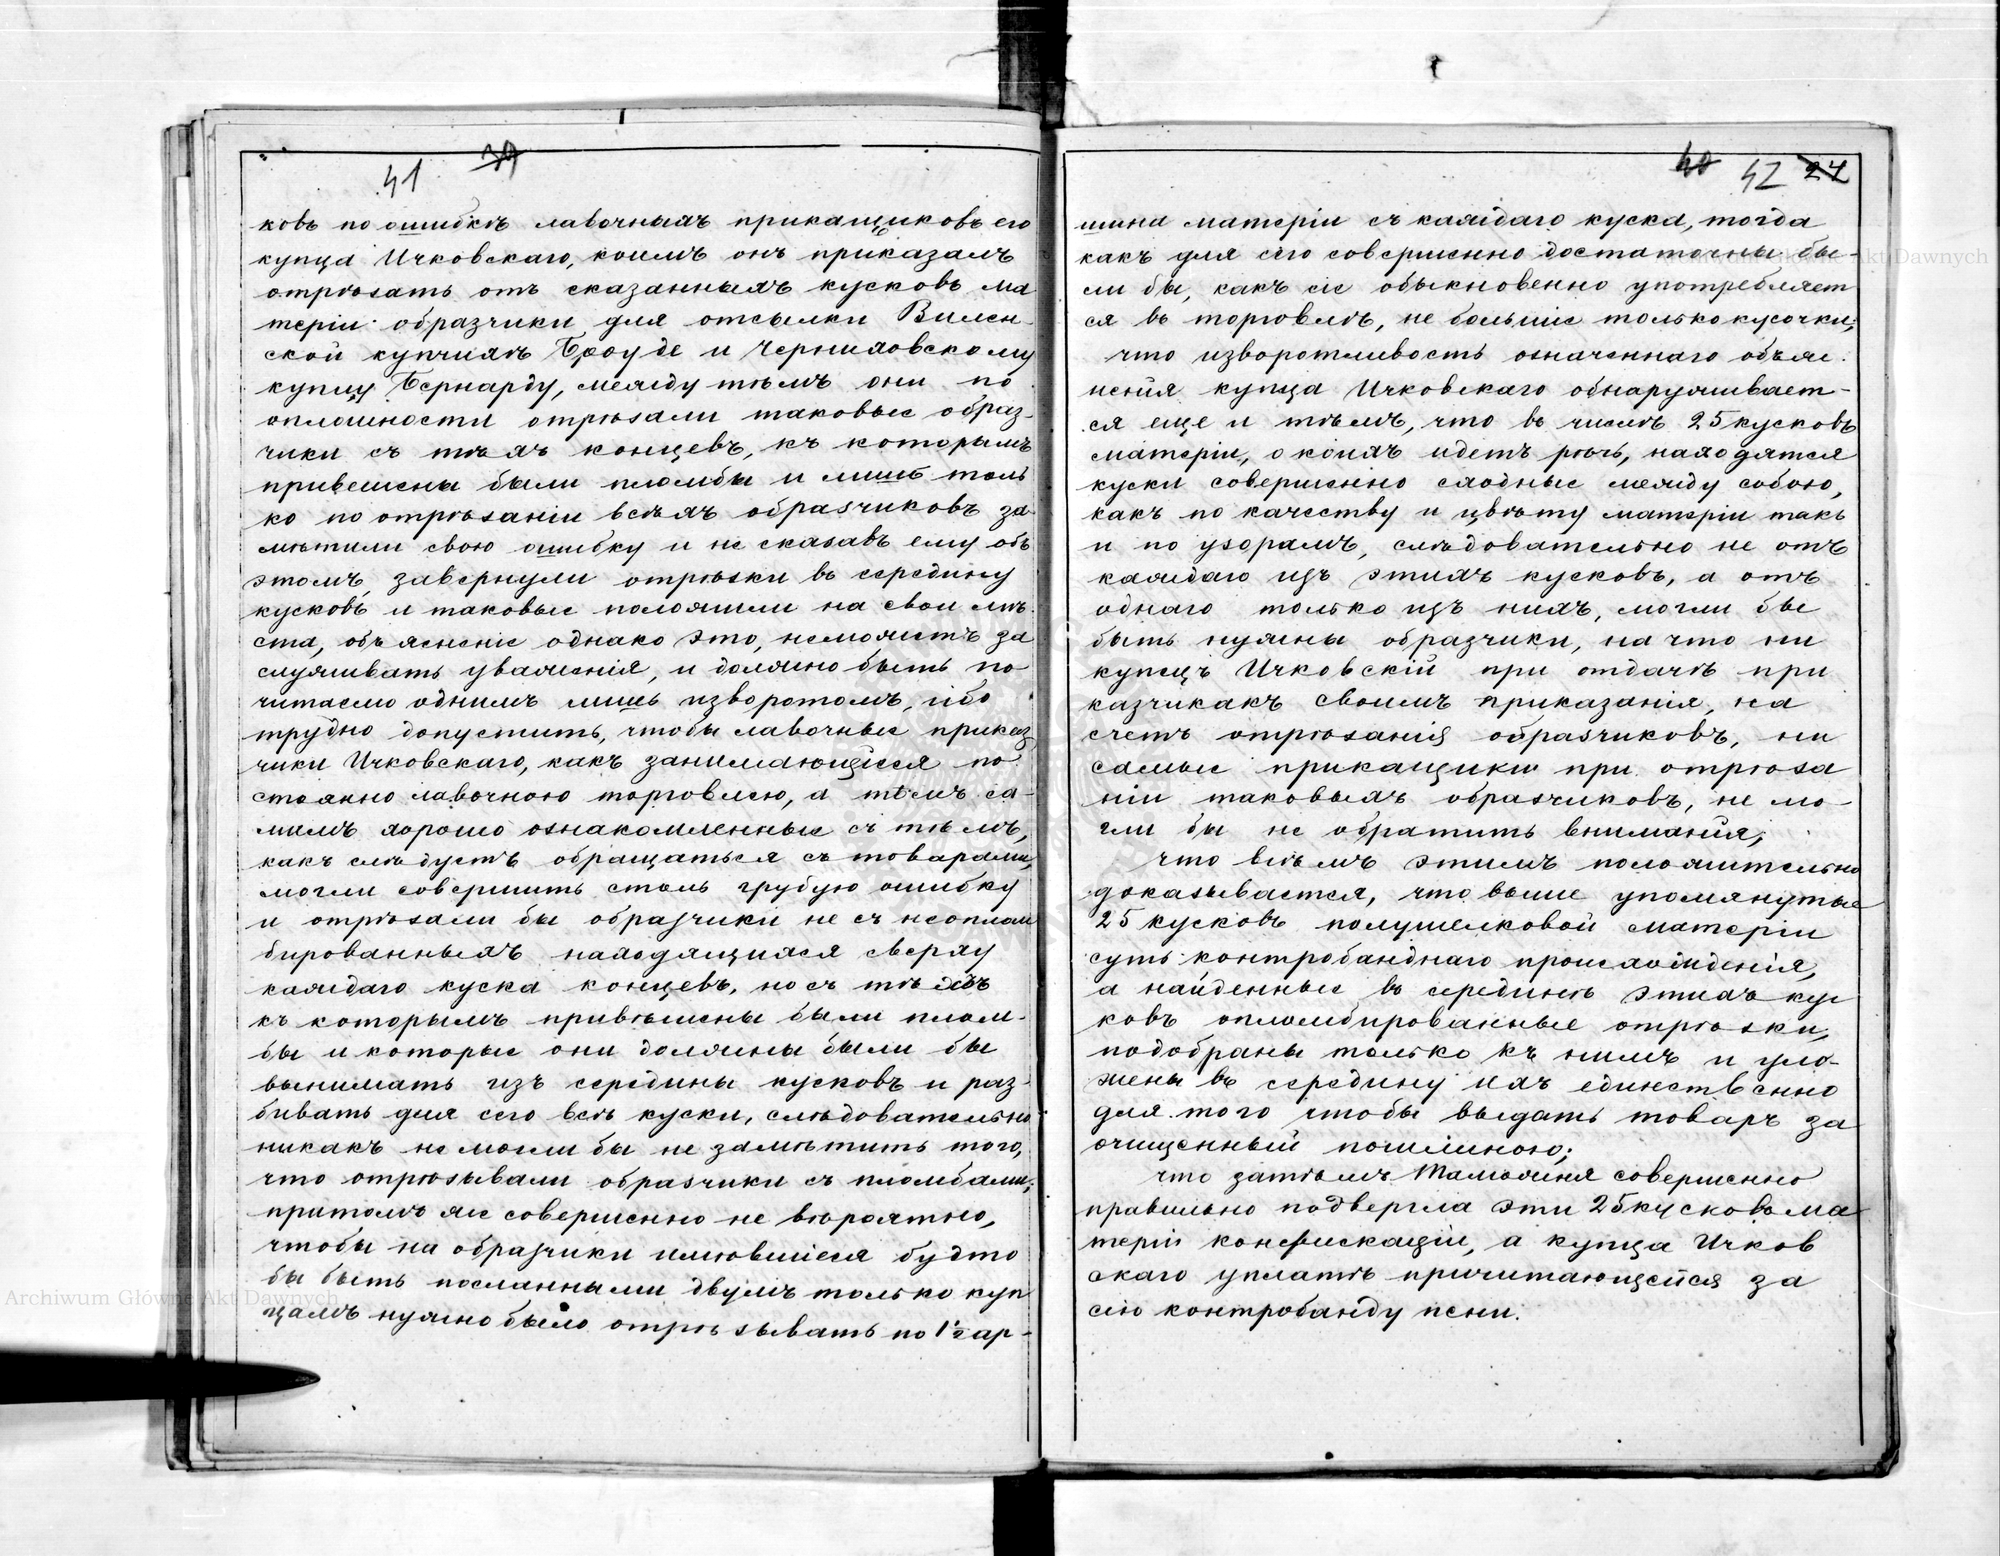 41 39
ковъ по ошибкѣ лавочныхъ прикащиковъ его
купца Ичковскаго, коимъ онъ приказалъ
отрѣзать отъ сказанныхъ кусковъ ма
теріи образчики для отсылки Вилен-
ской купчихѣ Броуде и Черниховскому
купцу Бернарду, между тѣмъ они по
оплошности отрѣзали таковые образ-
чики съ тѣхъ концевъ, къ которымъ
привешены были пломбы и лишь толь
ко по отрѣзаніи всѣхъ образчиковъ за
мѣтили свою ошибку и не сказавъ ему объ
этомъ, завернули отрѣзки въ середину
кусковъ и таковые положили на свои мѣ
ста, объясненіе однако это, неможетъ за
служивать уваженія, и должно быть по
читаемо однимъ лишь изворотомъ, ибо
трудно допустить, чтобы лавочные приказ
чики Ичковскаго, какъ занимающіеся по
стоянно лавочною торговлею, а тѣмъ са-
мымъ хорошо ознакомленные съ тѣмъ,
какъ слѣдуетъ обращаться съ товарами,
могли совершить столь грубую ошибку
и отрѣзали бы образчики не съ неоплом
бированныхъ находящихся сверху
каждаго куска концевъ, но съ тѣхъ
къ которымъ привѣшены были плом-
бы и которые они должны были бы
вынимать изъ середины кусковъ и раз-
бивать для сего всѣ куски, слѣдовательно
никакъ не могли бы не замѣтить того,
что отрѣзывали образчики съ пломбами;
притомъ же совершенно не вѣроятно,
чтобы на образчики имѣвшіеся будто
бы быть посланными двумъ только куп
цамъ нужно было отрѣзывать по 1½ ар-
40 42 24
шина матеріи съ каждаго куска, тогда
какъ для сего совершенно достаточны бы-
ли бы, какъ сіе обыкновенно употребляет
ся въ торговлѣ, не большіе только кусочки;
что изворотливость означеннаго объяс-
ненія купца Ичковскаго обнаруживает-
ся еще и тѣмъ, что въ числѣ 25 кусковъ
матеріи, о коихъ идетъ рѣчь, находятся
куски совершенно сходные между собою,
какъ по качеству и цвѣту матеріи такъ
и по узорамъ, слѣдовательно не отъ
каждаго изъ этихъ кусковъ, а отъ
однаго только изъ нихъ, могли бы
быть нужны образчики, на что ни
купецъ Ичковскій при отдачѣ при
казчикакъ своимъ приказанія, на
счетъ отрѣзанія образчиковъ, ни
самые прикащики при отрѣза
ніи таковыхъ образчиковъ, не мо-
гли бы не обратить вниманія;
что всѣмъ этимъ положительно
доказывается, что выше упомянутые
25 кусковъ полушелковой матеріи
суть контробанднаго происхожденія,
а найденные въ срединѣ этихъ кус
ковъ опломбированные отрѣзки,
подобраны только къ нимъ и уло-
жены въ середину ихъ единственно
для того чтобы выдать товаръ за
очищенный пошлиною;
что затѣмъ Таможня совершенно
правильно подвергла эти 25 кусковъ ма
теріи конфискаціи, а купца Ичков
скаго уплатѣ причитающейся за
сію контробанду пени.
Archiwum Główne Akt Dawnych